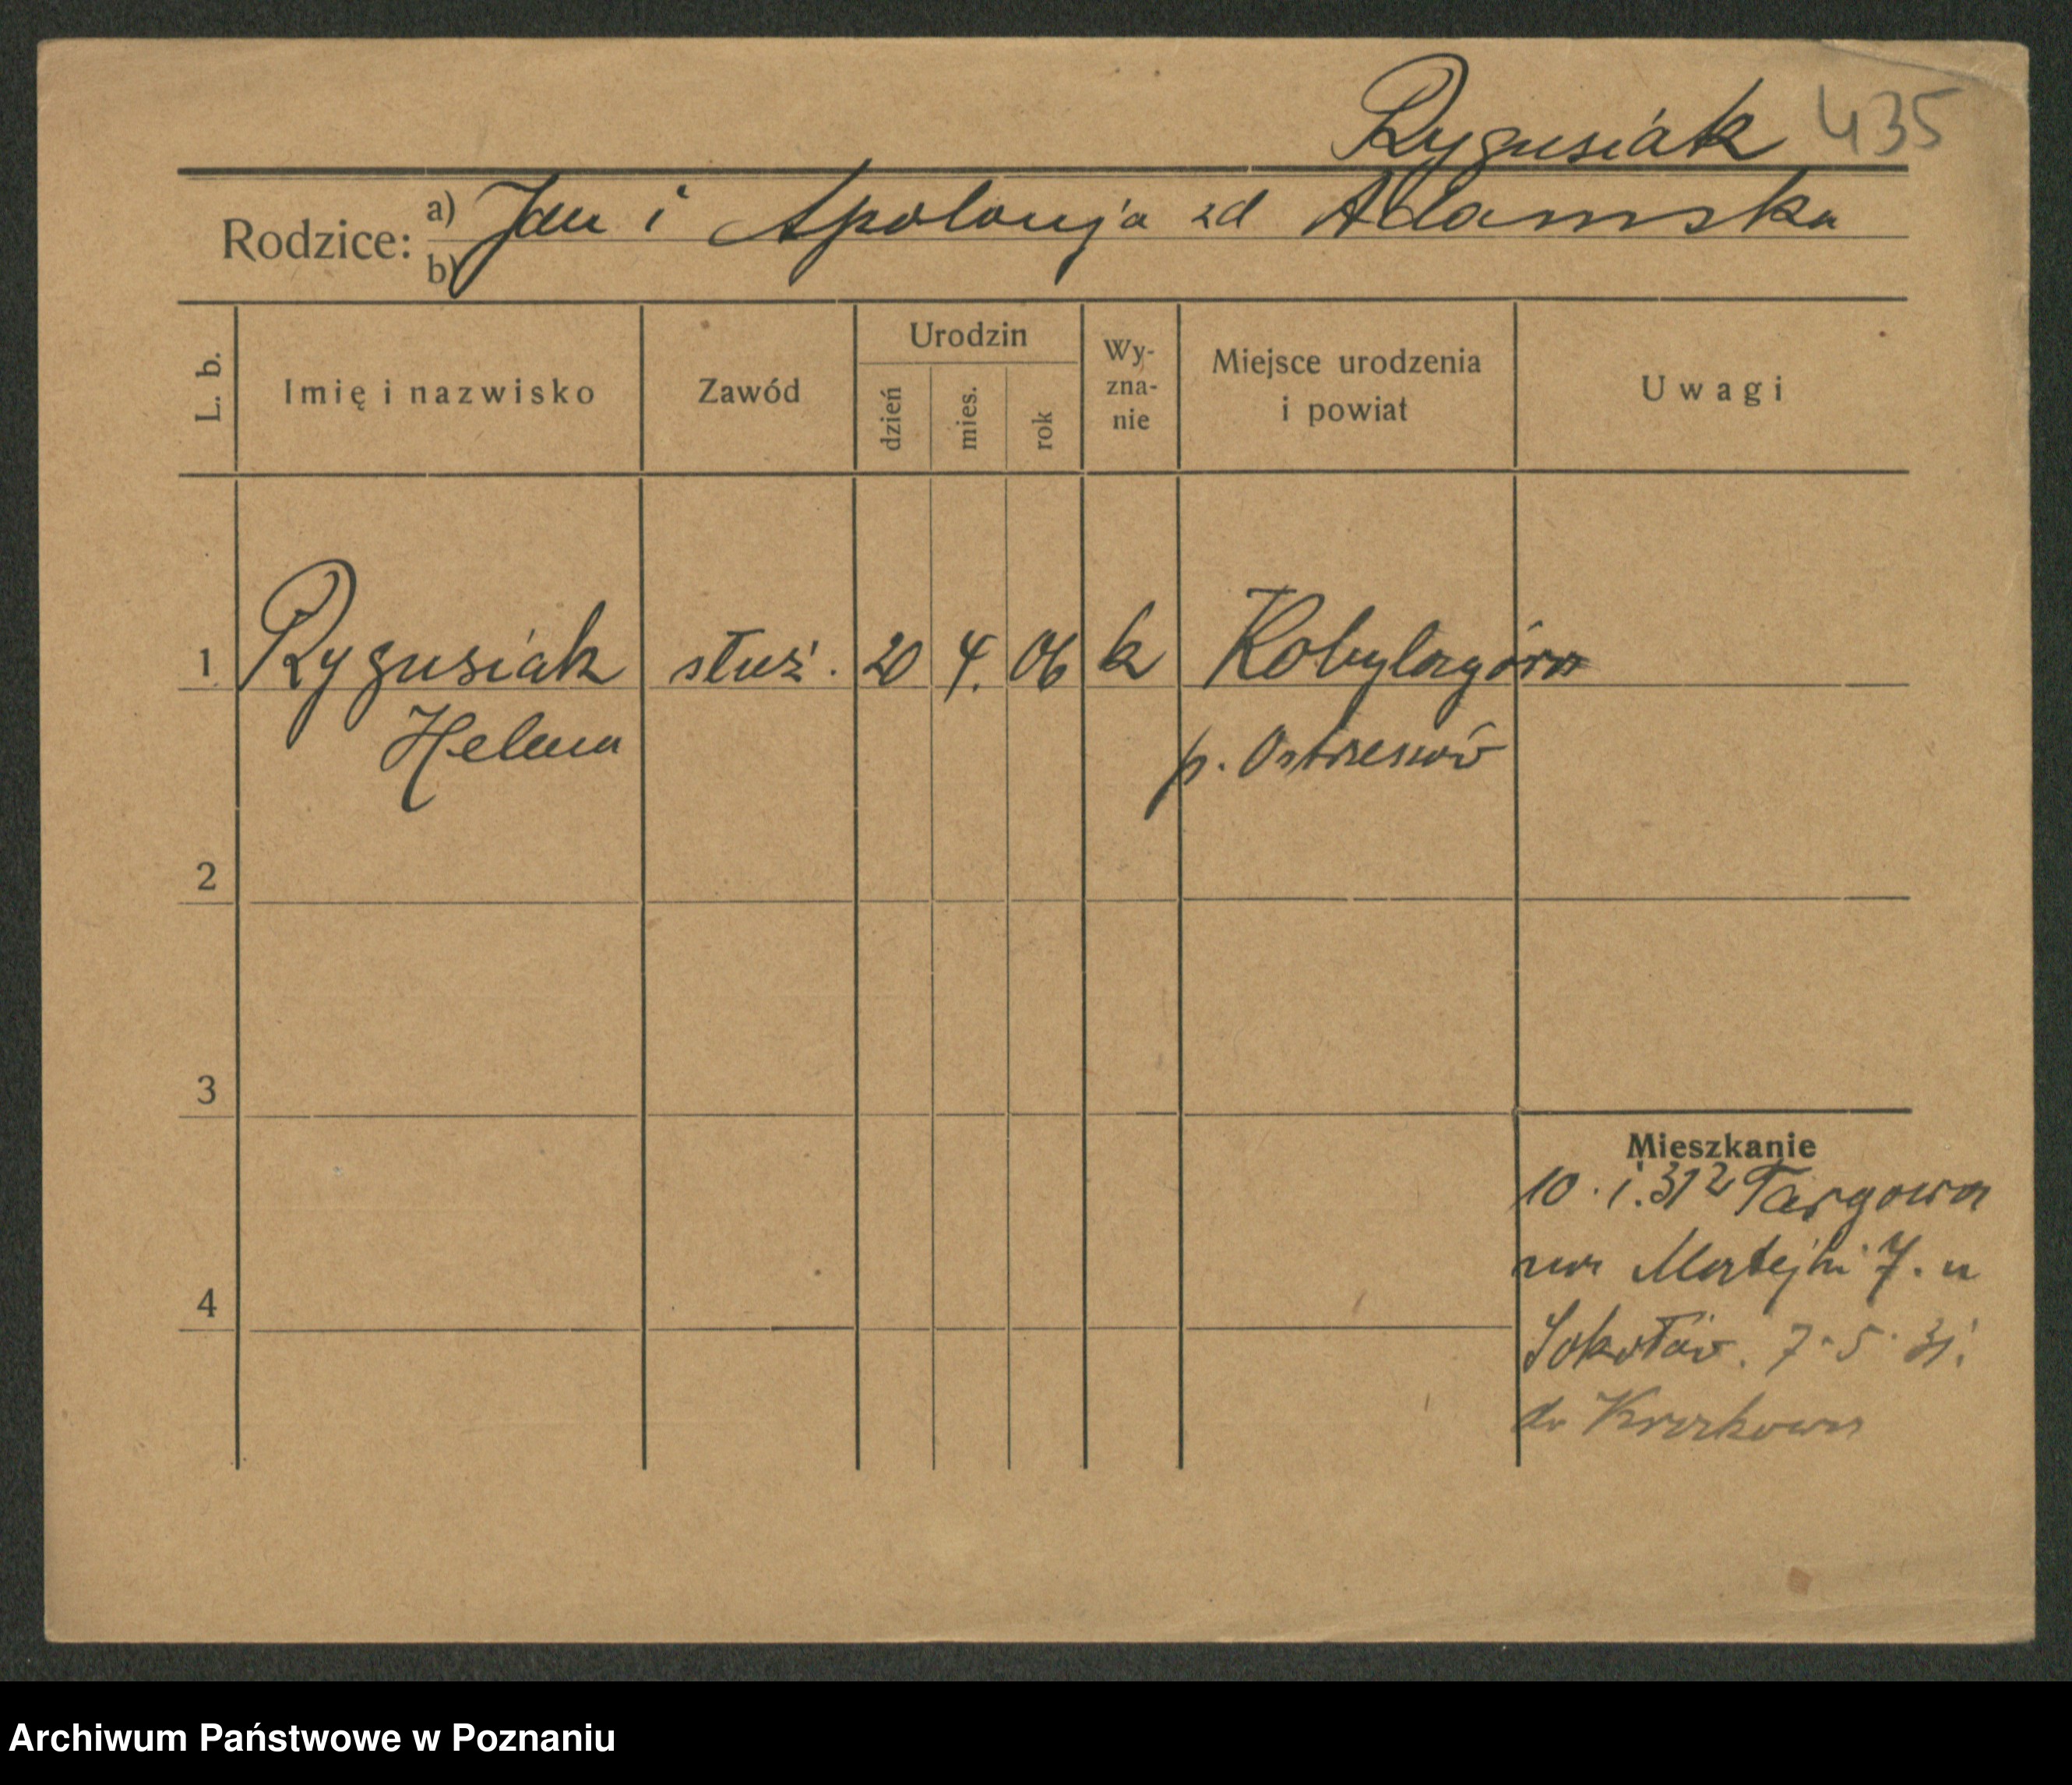 Rygusiak 435
Rodzice: a) Jan i Apolonja zd Adamska
b)
L. b.
Imię i nazwisko
Zawód
Urodzin
dzień
mies.
rok
Wy-
zna-
nie
Miejsce urodzenia
i powiat
Uwagi
1 Rygusiak służ. 20 4. 06 k Kobylagóra
Helena p. Ostrzeszów
2
3
4
Mieszkanie
10. 1. 31 z Targowa
na Matejki 7. u
Sokołów. 7·5·31.
do Krakowa
Archiwum Państwowe w Poznaniu